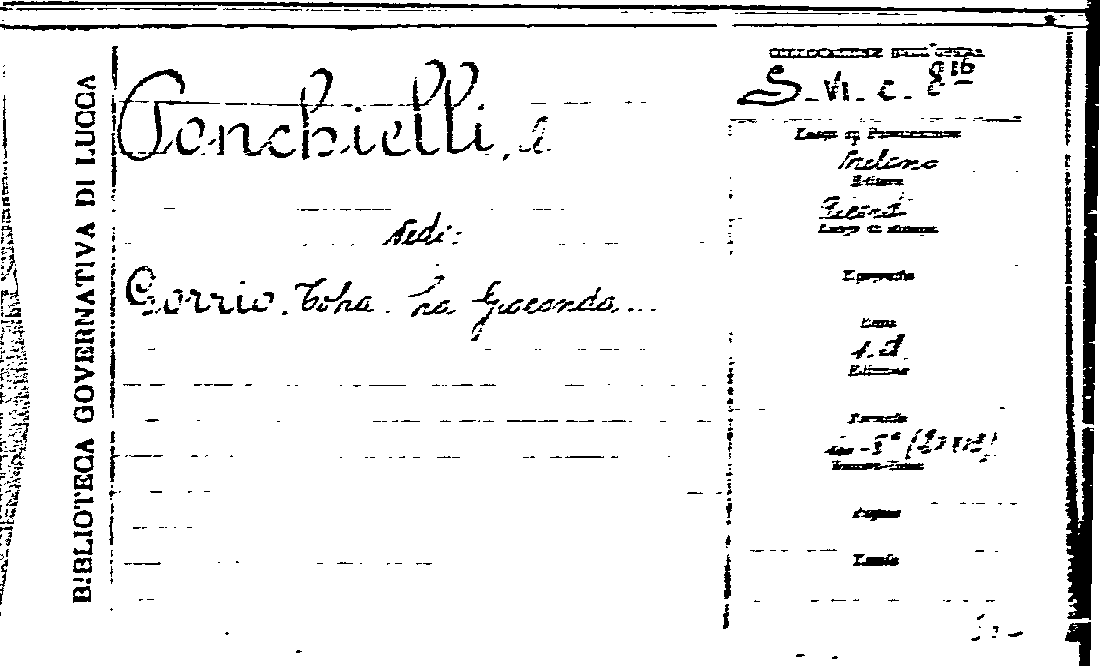 BIBLIOTECA GOVERNATIVA DI LUCCA
Ponchielli, A
Vedi:
Gorrio. Tobia. La Gioconda...
COLLOCAZIONE DELL'OPERA
S. VI. C. 816
Luogo di Pubblicazione
Milano
Editore
Ricordi
Luogo di stampa
Tipografia
Data
s.d.
Edizione
Formato
in-8°
Numero Tomi
Pagine
Tavole